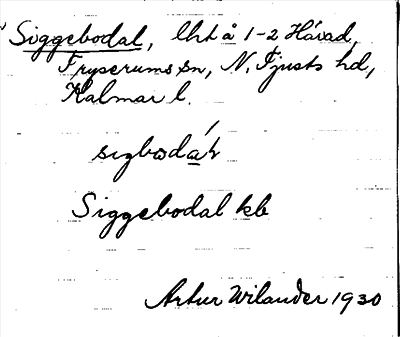 Siggebodal, lht å 1-2 Hårad,
Fryserums sn, N. Tjusts hd,
Kalmar l.
Siggebodal kb
Artur Wilander 1930